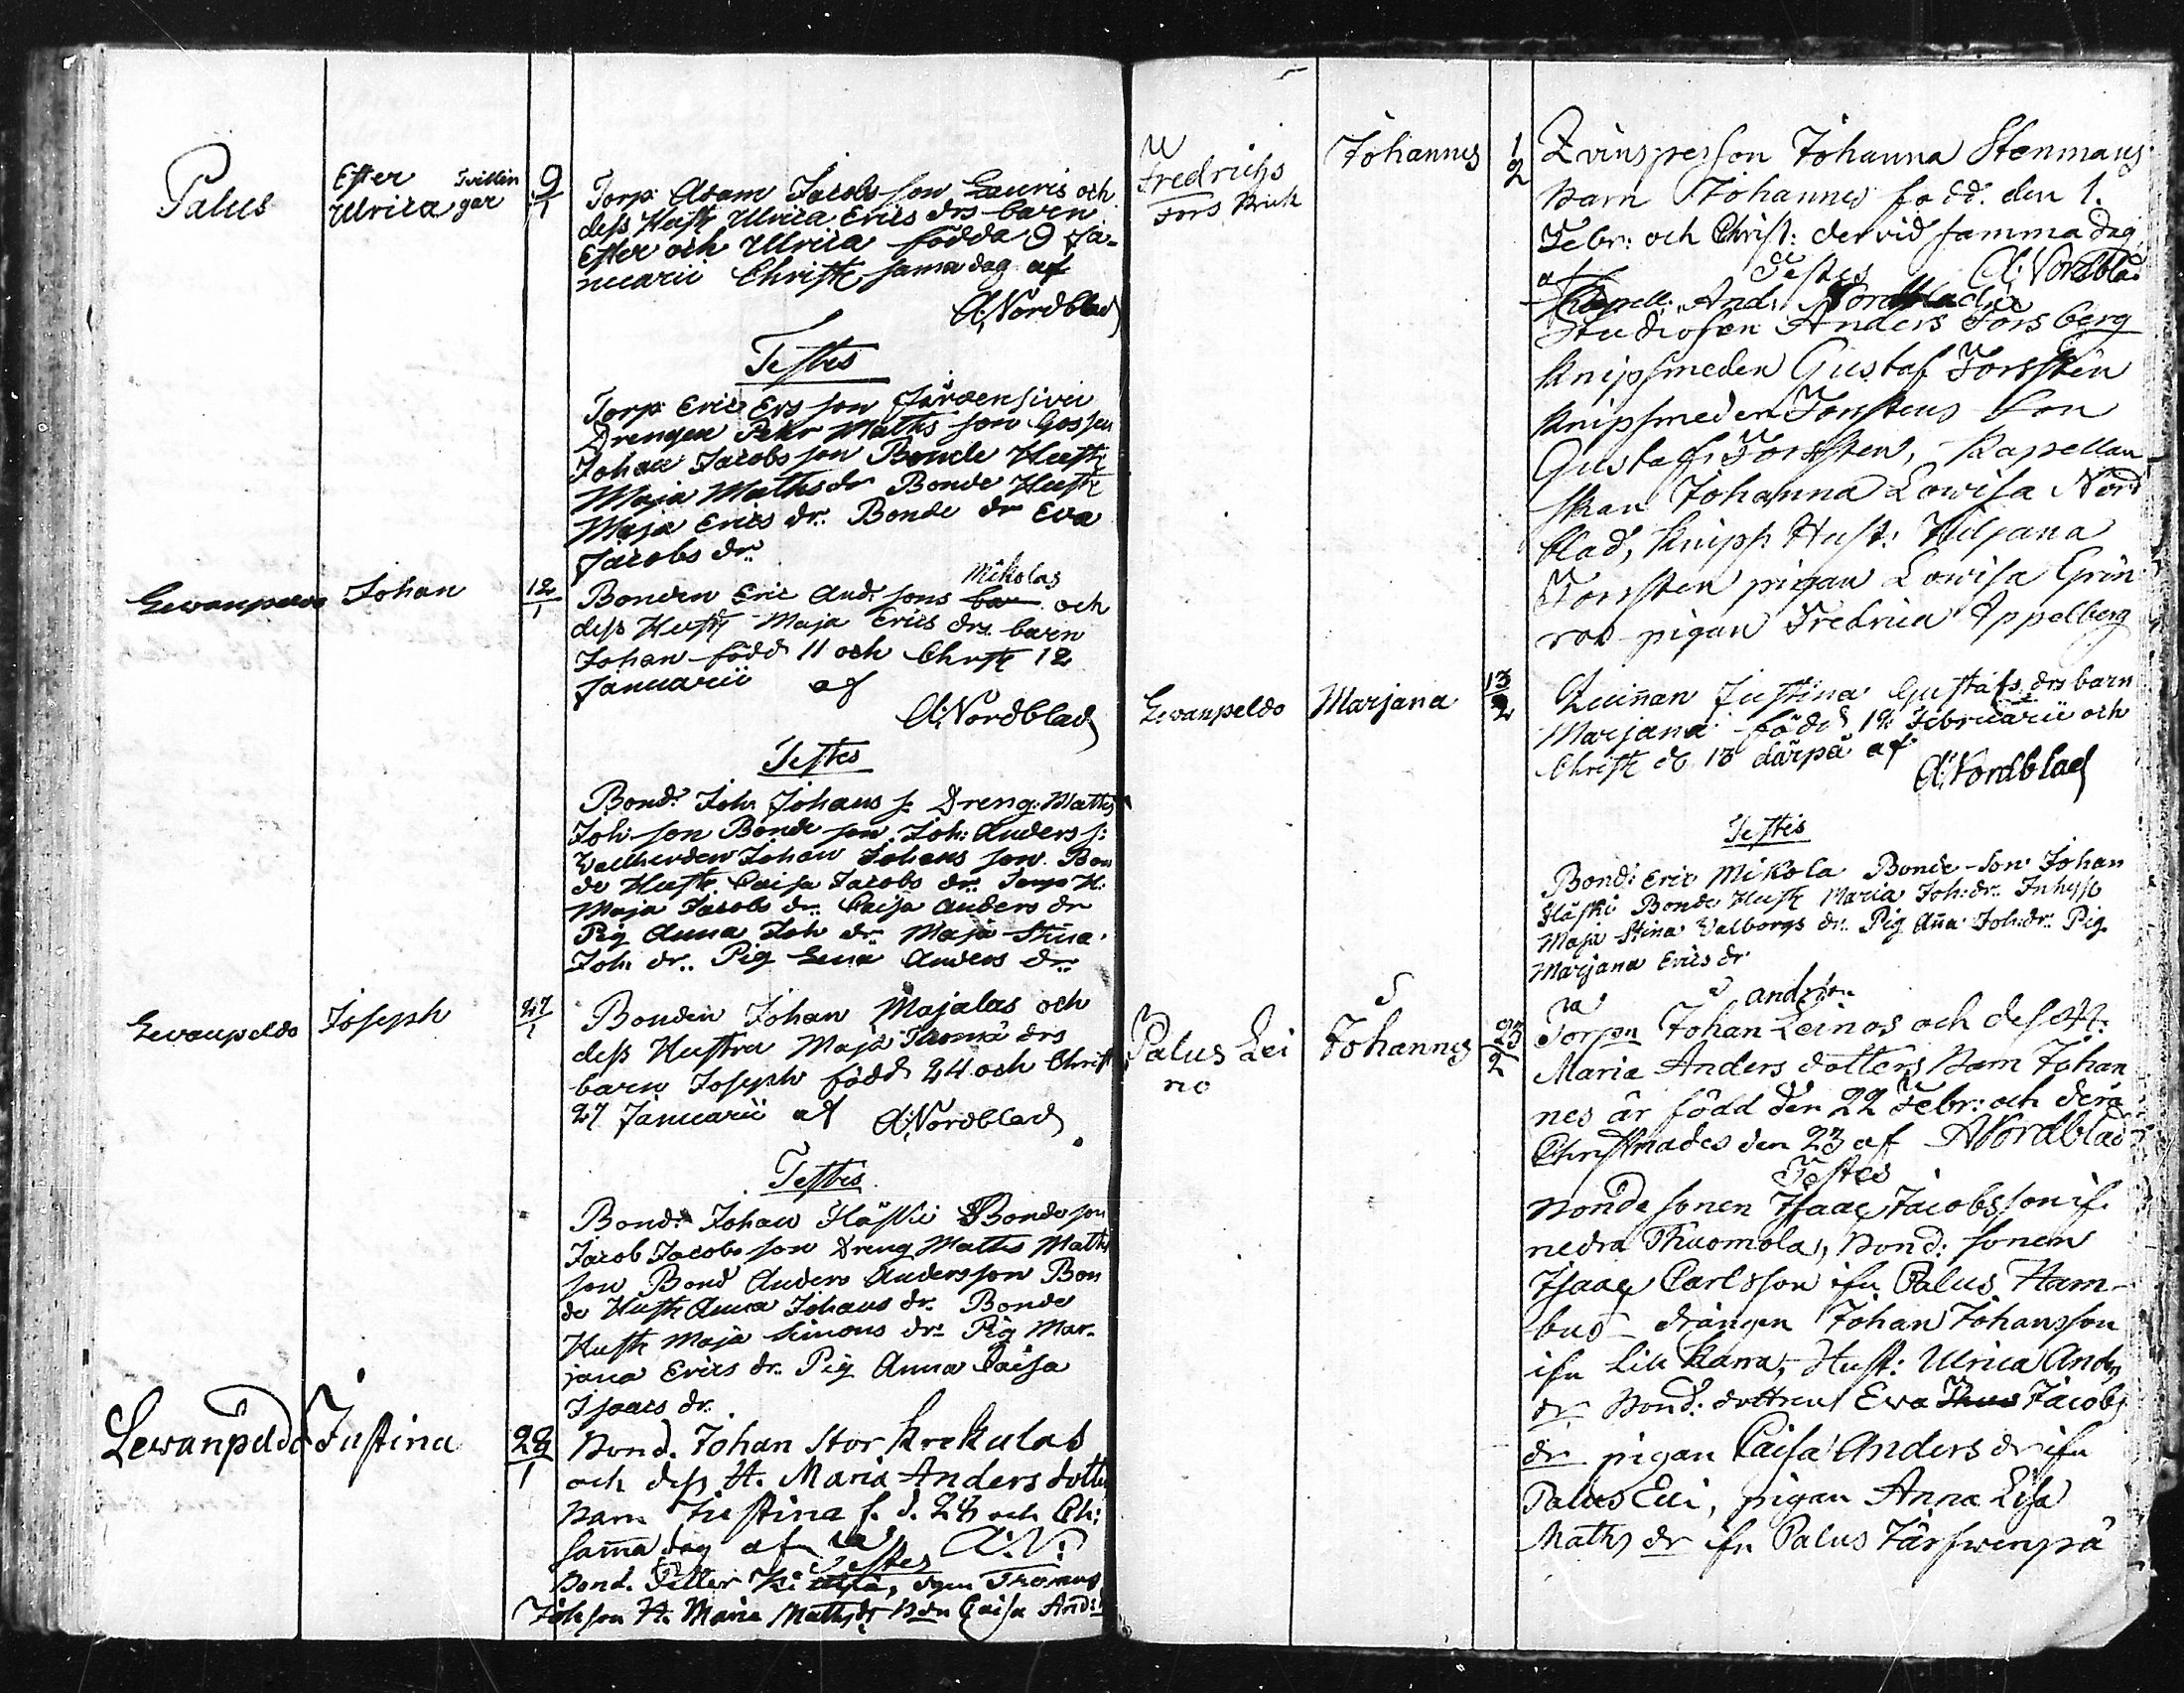 Palus
Ester Tvillin
Ulrica gar
9
1
Torp: Adam Jacobs son Lauris och
dess Hustr Ulrica Erics drs barn
Ester och Ulrica födda 9 Ja-
nuarii Christ. sama dag af
A: Nordblad
Testes
Torp: Eric Ers son
Drengen Petter Maths son Gossen
Johan Jacobs son Bonde Hustr
Maja Maths dr Bonde Hustr
Maja Erics dr: Bonde dr Eva
Jacobs dr.
Levanpeldo
Johan
12
1
Mikolas
Bonden Eric And: sons och
dess Hustr Maja Erics drs barn
Johan född 11 och Christ 12
Januarii af
A: Nordblad
Testes
Bond: Joh: Johans s: Dreng: Maths
Joh: son Bonde son Joh: Anders s:
Johan Johans son Bon
de Hustr. Caisa Jacobs dr. Torp H:
Maja Jacobs dr. Caisa Anders dr
Pig Anna Joh dr Maja Stina
Joh: dr. Pig Lena Anders dr
Levanpeldo
Joseph
27
1
Bonden Johan Majalas och
dess Hustru Maja Thoma drs
barn Joseph född 24 och Christ
27 Januarii af A: Nordblad
Testes
Bond: Johan Häski Bonde son
Jacob Jacobs son Dreng Maths Maths
son Bond Anders Andersson Bon
de Hustr Anna Johans dr. Bonde
Hustr Maja Simons dr: Pig Mar-
jana Erics dr. Pig Anna Caisa
Isaacs dr.
Lewanpeldo
Justina
28
1
Bond. Johan Stor Krekulas
och dess H. Maria Anders dotters
Barn Justina f. d. 28 och Ch:
sama dag af A: N:
Testes
Bond. Petter Thomas
Joh son H. Maria Maths dr Caisa And: d
Fredrichs
fors Bruk
Johannes
1
2
Qvinsperson Johanna Stenmans
Barn Johannes född. den 1.
Febr: och Christ: dervid samma dag
af Testes A: Nordblad
Kapell: And: Nordblad
Studiosen Anders Forsberg
Knipsmeden Gustaf Forssten
Knipsmeden Forstens Son
Gustaf Forssten, Kapellan
skan Johanna Lowisa Nord
blad, Knipss Hust: Uljana
Forssten pigan Lowisa Grön
roos pigan Fredrica Appelberg
Levanpeldo
Marjana
13
2
Quinnan Justina Gustafs drs barn
Marjana född 12 Februarii och
Christ d 13 därpå af
A: Nordblad
Testes
Bond: Eric Mikola Bonde-son Johan
Häski Bonde Hustr Maria Joh: dr. Inhyss
Maja Stina Valborgs dr. Pig Aña Joh: dr: Pig
Marjana Erics dr
Palus Lei
no
Johannes
23
2
andsson
Torpen Johan Leinos och dess H:
Maria Anders dotters Barn Johan
nes är född den 22 Febr: och derå
Christnades den 23 af A Nordblad
Testes
Bonde sonen Isaac Jacobsson if.
nedra Thuomola, Bond: sonen
Isaac Carlsson ifn Palus Ham-
bus drängen Johan Johansson
ifn Lill Karra, Hust: Ulrica Anders
dr Bond: dottren Ewa Jacobs
dr pigan Caisa Anders dr ifn
Palus Eli, pigan Anna Lisa
Maths dr ifn Palus